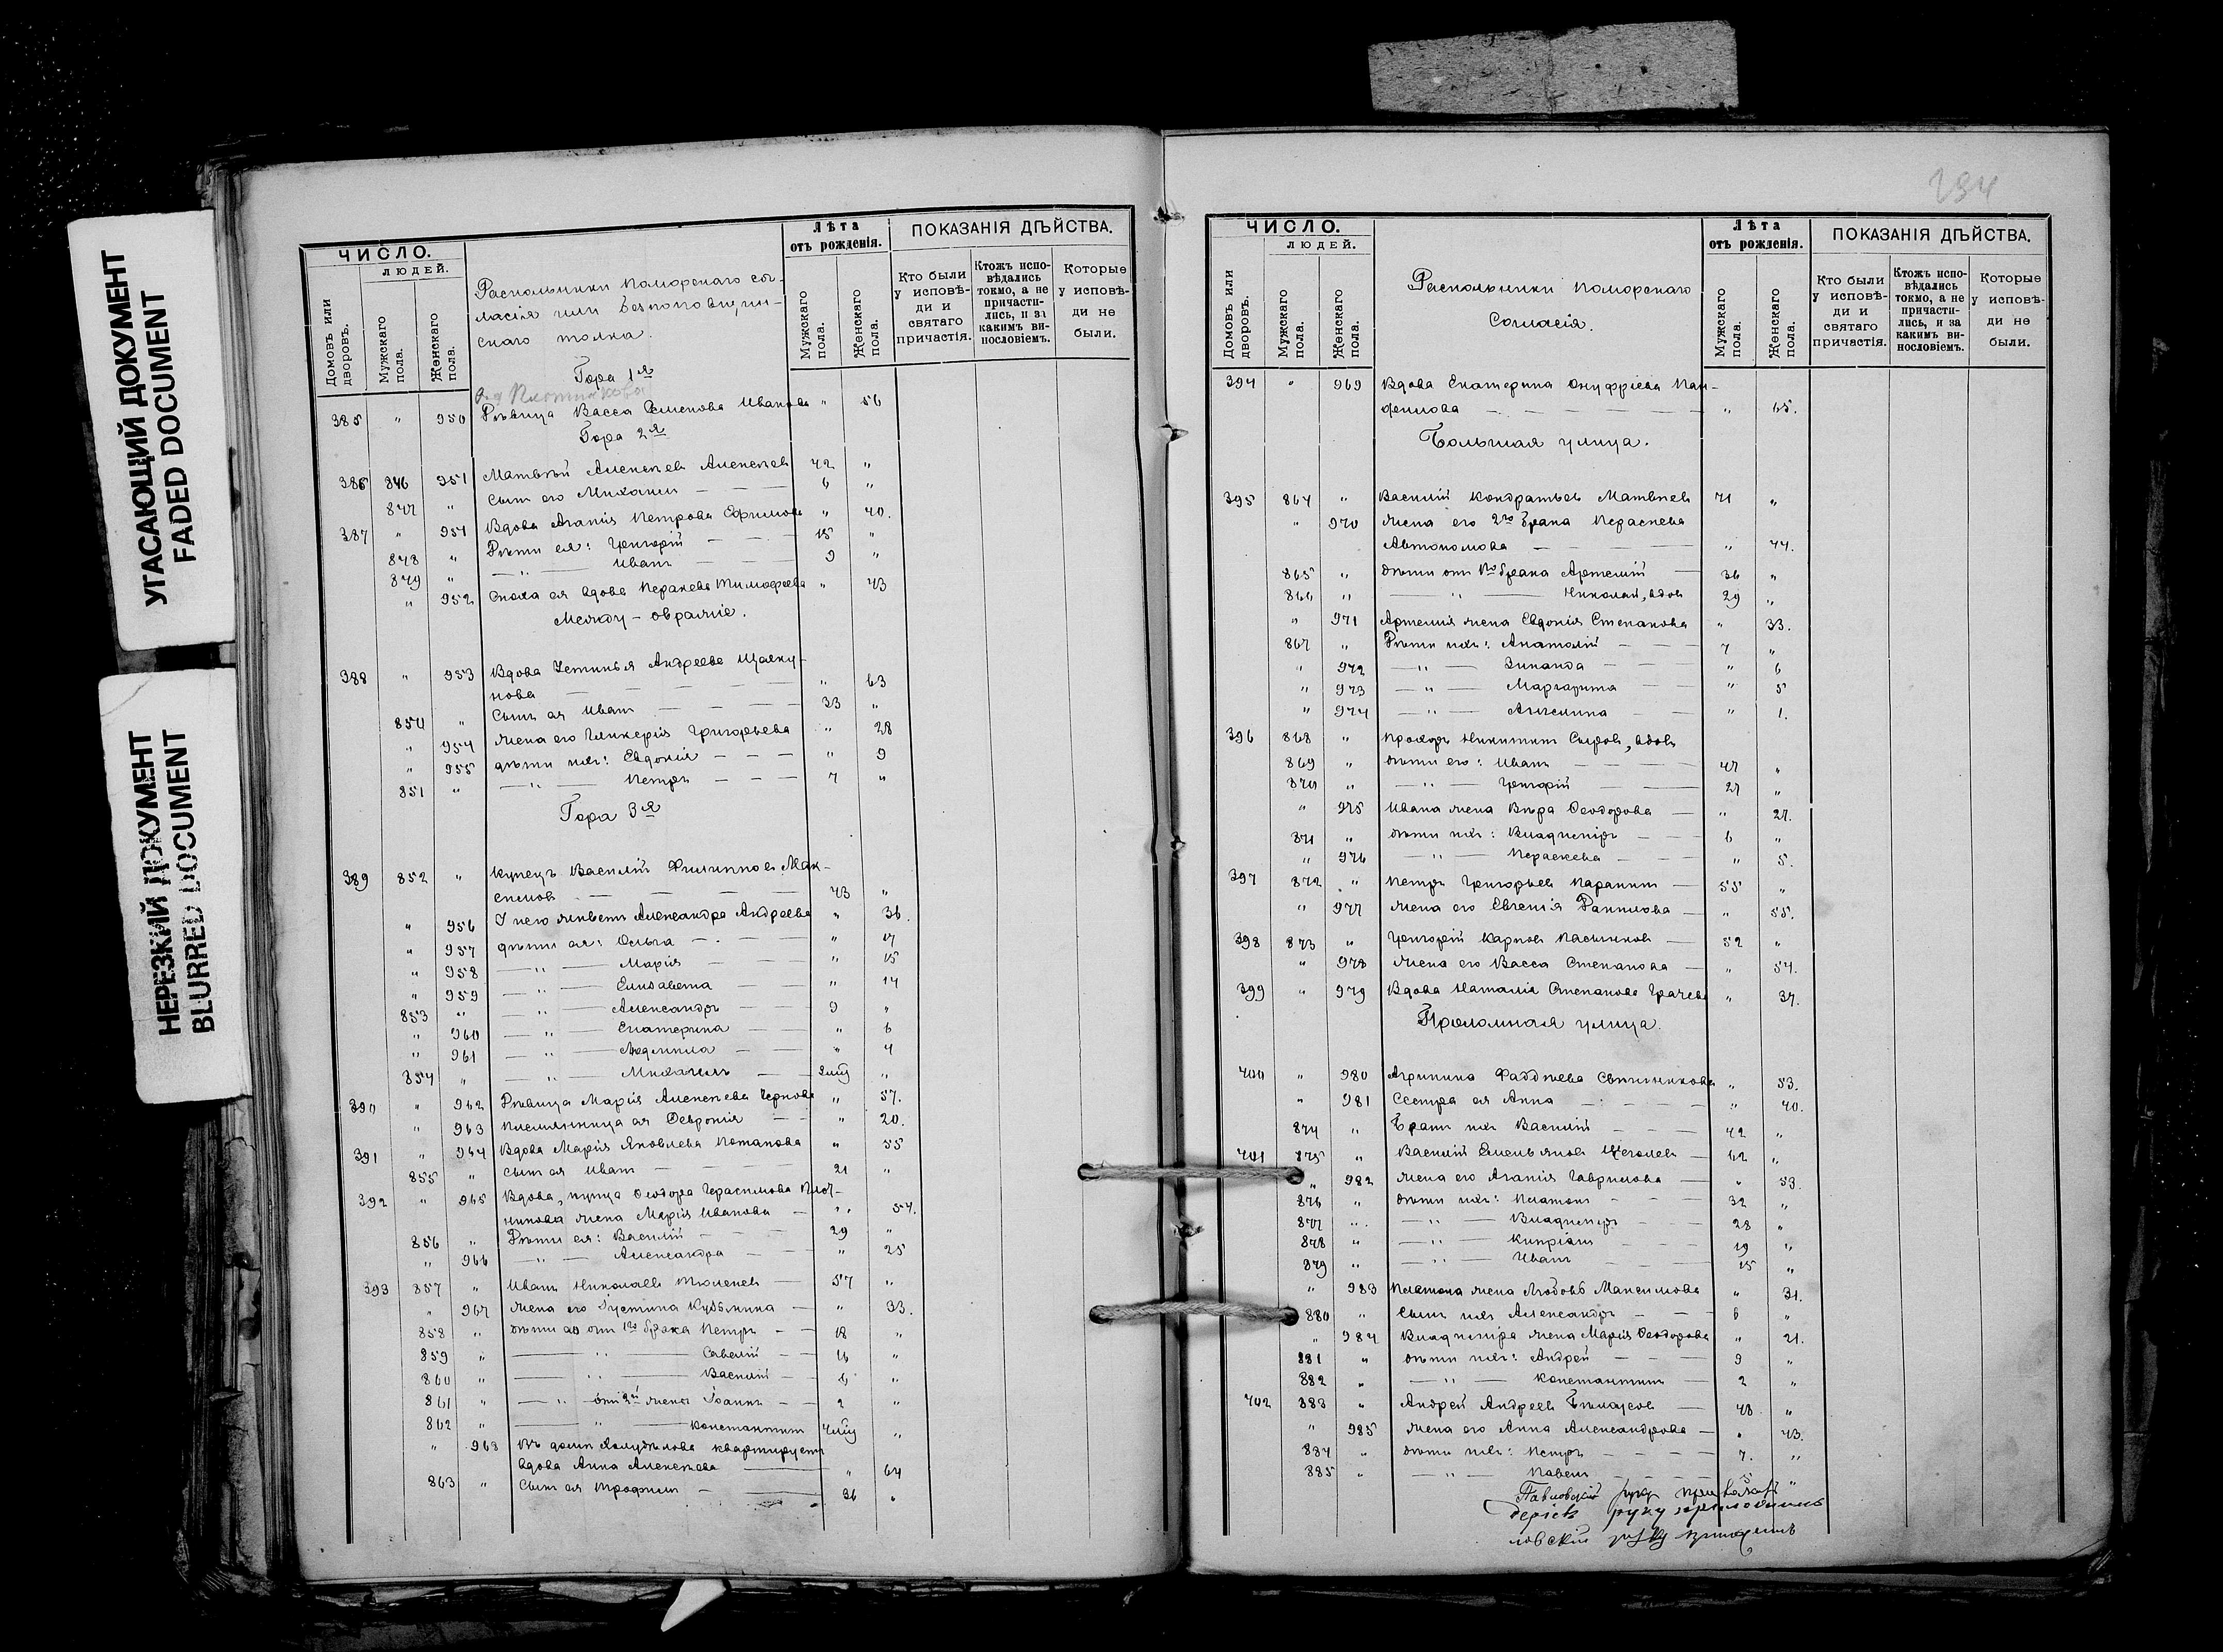 УГАСАЮЩИЙ ДОКУМЕНТ
FADED DOCUMENT
НЕРЕЗКИЙ ДОКУМЕНТ
BLURRED DOCUMENT
ЧИСЛО.
ЛЮДЕЙ.
Домовъ или дворовъ.
Мужскаго пола.
Женскаго пола.
Раскольники Поморскаго со-
гласія или безпоповщин-
скаго толка.
Лѣта
отъ рожденія.
Мужскаго пола.
Женскаго пола.
ПОКАЗАНІЯ ДѢЙСТВА.
Кто были у исповѣ-ди и святаго причастія.
Ктожъ испо-вѣдались токмо, а не причасти-лись, и за какимъ ви-нословіемъ.
Которые у исповѣ-ди не были.
Гора 1я
385 " 950 Дѣвица Васса Семенова Иванова " 56
Гора 2я
386 846 951 Матвѣй Алексѣевъ Алексѣевъ 42 "
847 " Сынъ его Михаилъ 6 "
387 " 951 Вдова Агапія Петрова Ефимова " 40.
848 " Дѣти ея: Григорій 15 "
849 " Иванъ 9 "
" 952 Сноха ея вдова Параскева Тимофеева " 43
Между-овражіе.
388 " 953 Вдова Устинья Андреева
нова " 63
850 " Сынъ ея Иванъ 33 "
" 954 Жена его Гликерія Григорьева " 28
" 955 дѣти ихъ: Евдокія " 9
851 " Петръ 7 "
Гора 3я
389 852 " Купецъ Василій Филипповъ Мак-
симовъ 43 "
" 956 У него живетъ Александра Андреева " 36.
" 957 дѣти ея: Ольга " 17
" 958 Марія " 15
" 959 Елизавета " 14
853 " Александръ 9 "
" 960 Екатерина " 6
" 961 Людмила " 4
854 " Михаилъ "
390 " 962 Дѣвица Марія Алексѣева Чернова " 57.
" 963 Племянница ея Февронія " 20.
391 " 964 Вдова Марія Яковлева Потапова " 55
855 " Сынъ ея Иванъ 21 "
392 " 965 Вдова, купца Ѳеодора Герасимова Плот-
никова жена Марія Иванова " 54.
856 " Дѣти ея: Василій 29 "
" 966 Александра " 25
393 857 " Иванъ Николаевъ Тюленевъ 57 "
" 967 Жена его Іустина Кузьмина " 33.
858 " дѣти его отъ 1го брака Петръ 18 "
859 " Савелій 16 "
860 " Василій "
861 " отъ 2й жены Іоаннъ 2 "
862 " Константинъ "
" 968 Въ домѣ квартируетъ
вдова Анна Алексѣева " 64
863 " Сынъ ея Трофимъ 36 "
294
ЧИСЛО.
ЛЮДЕЙ.
Домовъ или дворовъ.
Мужскаго пола.
Женскаго пола.
Раскольники Поморскаго
Согласія.
Лѣта
отъ рожденія.
Мужскаго пола.
Женскаго пола.
ПОКАЗАНІЯ ДѢЙСТВА.
Кто были у исповѣ-ди и святаго причастія.
Ктожъ испо-вѣдались токмо, а не причасти-лись, и за какимъ ви-нословіемъ.
Которые у исповѣ-ди не были.
394 " 969 Вдова Екатерина Онуфріева Пан-
филова " 65.
Большая улица.
395 864 " Василій Кондратьевъ Матвѣевъ 71 "
" 970 Жена его 2го брака Параскева
Автономова " 44.
865 " дѣти отъ 1го брака Артемій 36 "
866 " Николай, вдов 29 "
" 971 Артемія жена Евдокія Степанова " 33.
867 " Дѣти ихъ: Анатолій 7 "
" 972 Зинаида " 6
" 973 Маргарита " 5
" 974 Ангелина " 1.
396 868 " Прохоръ Никитинъ Сыровъ, вдовъ
869 " дѣти его: Иванъ 47 "
870 " Григорій 27 "
" 975 Ивана жена Вѣра Ѳеодорова " 27.
871 " дѣти ихъ: Владиміръ 6 "
" 976 Параскева " 5.
397 872 " Петръ Григорьевъ Каранинъ 55 "
" 977 Жена его Евгенія Данилова " 55.
398 873 " Григорій Карповъ Пасынковъ 52 "
" 978 Жена его Васса Степанова " 54.
399 " 979 Вдова Наталія Степанова Грачева " 37.
Проломная улица.
400 " 980 Агрипина Фаддѣева Свѣшникова " 53.
" 981 Сестра ея Анна " 40.
874 " Братъ ихъ Василій 42 "
401 875 " Василій Емельяновъ Щеголевъ 62 "
" 982 Жена его Агапія Гаврилова " 53.
876 " дѣти ихъ: Платонъ 32 "
877 " Владиміръ 28 "
878 " Кипріанъ 19 "
879 " Иванъ 15 "
" 983 Платона жена Любовь Максимова " 31.
880 " Сынъ ихъ Александръ 6 "
" 984 Владиміра жена Марія Ѳеодорова " 21.
881 " дѣти ихъ: Андрей 9 "
882 " Константинъ 2 "
402 883 " Андрей Андреевъ Бѣлоусовъ 48 "
" 985 Жена его Анна Александрова " 43.
884 " дѣти ихъ: Петръ 7. "
885 " Павелъ 5 "
Павловскій руку приложилъ
руку приложилъ
ловскій руку приложилъ